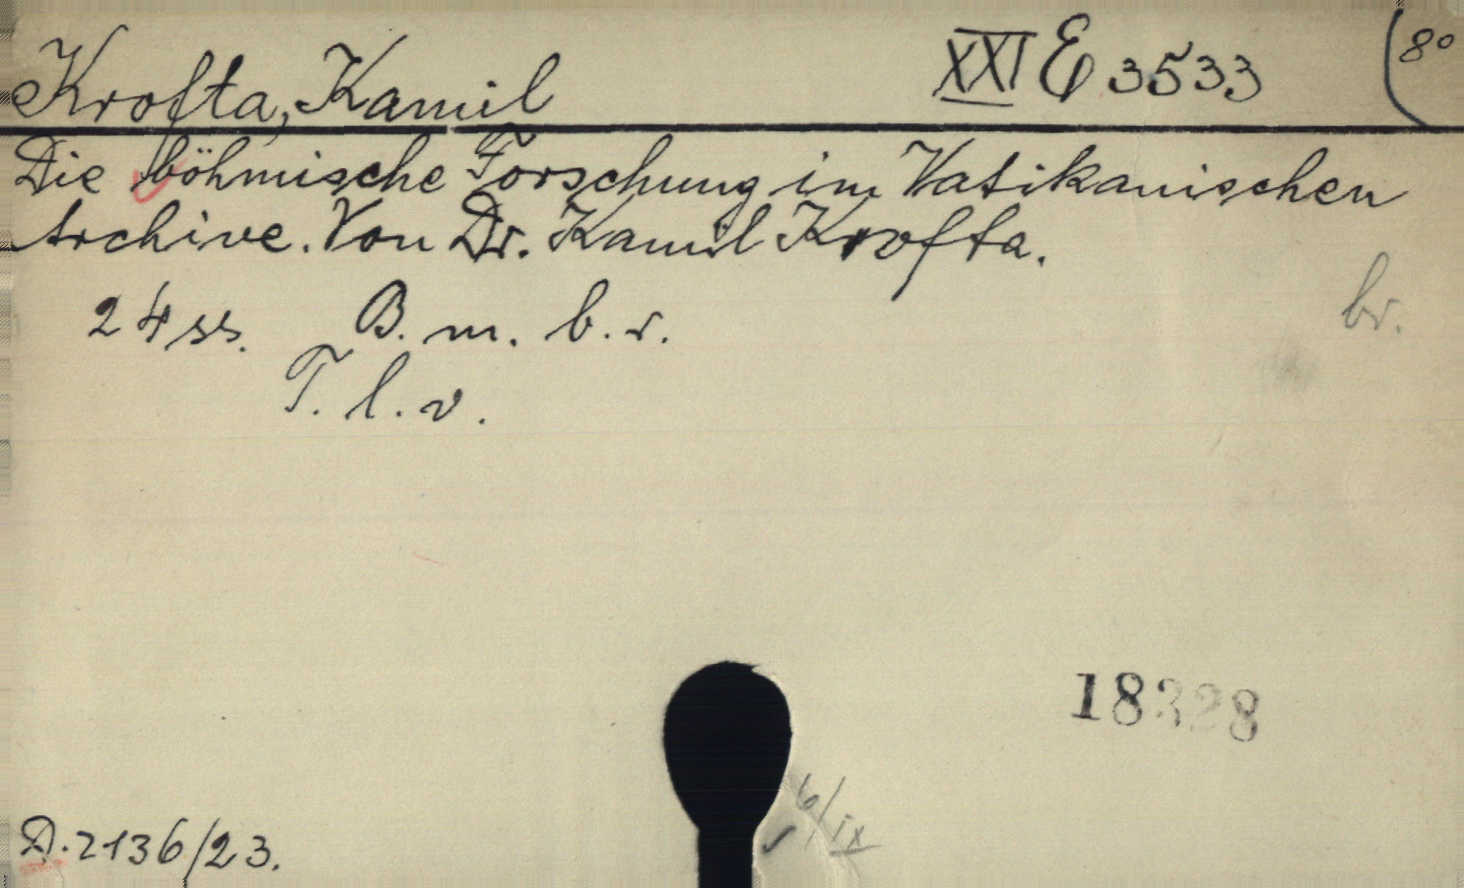 Krofta, Kamil XXI E 3533 (8°
Die böhmische Forschung im Vatikanischen
Archive. Von Dr. Kamil Krofta.
br.
24 ss. B. m. b. r.
T. l. v.
18328
6/IX
D. 2136/23.